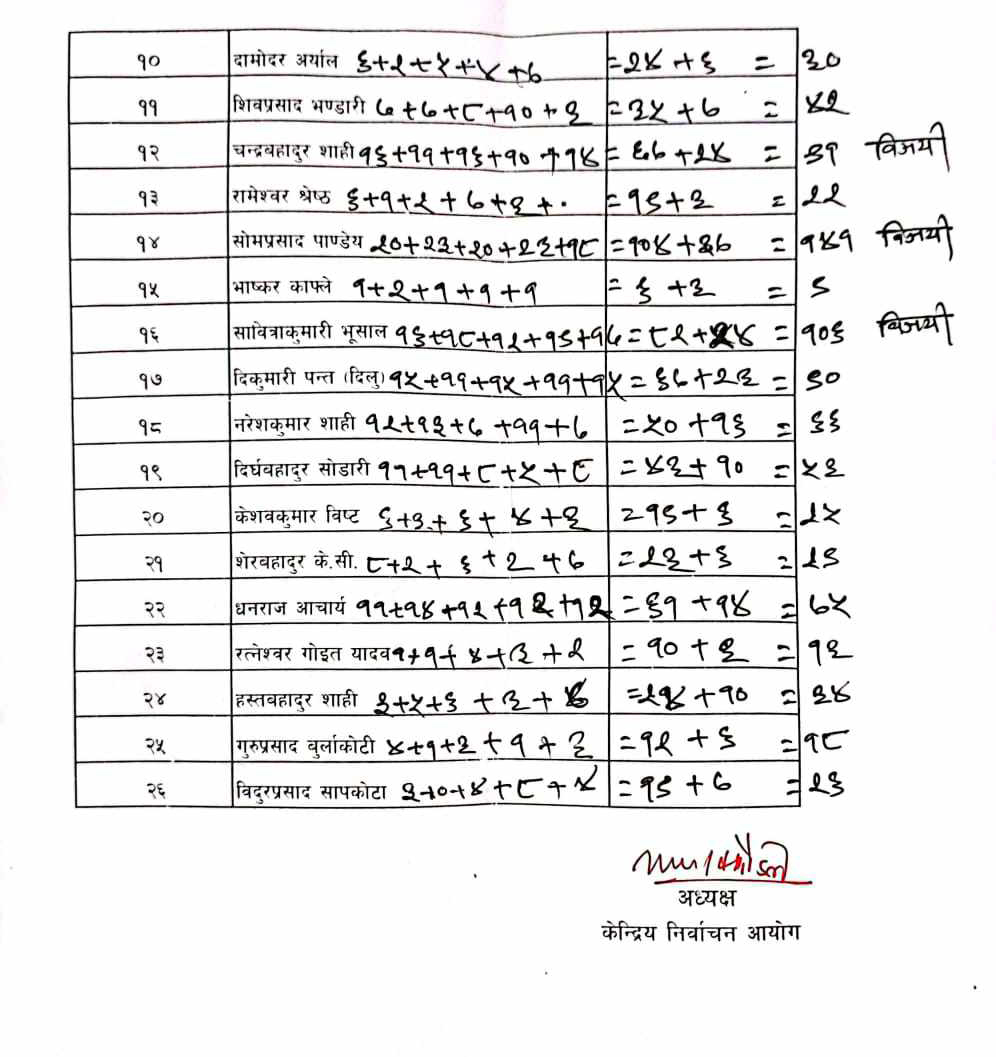 १० दामोदर अर्याल ६+२+५+४+७ =२४+६ = ३०
११ शिवप्रसाद भण्डारी ७+७+८+१०+३ =३५+७ = ४२
१२ चन्द्रबहादुर शाही १६+११+१६+१०+१४ = ६७+२४ = ९१ विजयी
१३ रामेश्वर श्रेष्ठ ६+१+२+७+३+. =१९+३ = २२
१४ सोमप्रसाद पाण्डेय २०+२३+२०+२३+१८ =१०४+३७ = १४१ विजयी
१५ भाष्कर काफ्ले १+२+१+१+१ = ६+३ = ९
१६ सावित्राकुमारी भूसाल १६+१८+१२+१९+१७ = ८२+२४ = १०६ विजयी
१७ दिकुमारी पन्त (दिलु) १५+११+१५+११+१५ = ६७+२३ = ९०
१८ नरेशकुमार शाही १२+१३+७+११+७ =५०+१६ = ६६
१९ दिर्घबहादुर सोडारी ११+११+८+५+८ =४३+१० = ५३
२० केशवकुमार विष्ट ६+३+६+४+३ =१९+६ =२५
२१ शेरबहादुर के.सी. ८+२+६+२+७ =२३+६ =२९
२२ धनराज आचार्य ११+१४+१२+१२+१२ =६१+१४ =७५
२३ रत्नेश्वर गोइत यादव १+१+४+३+२ =१०+३ =१३
२४ हस्तबहादुर शाही ३+५+६+३+७ =२४+१० =३४
२५ गुरुप्रसाद बुर्लाकोटी ४+१+२+१+३ =१२+६ =१८
२६ विदुरप्रसाद सापकोटा २+०+४+८+५ =१९+७ =२६
अध्यक्ष
केन्द्रिय निर्वाचन आयोग